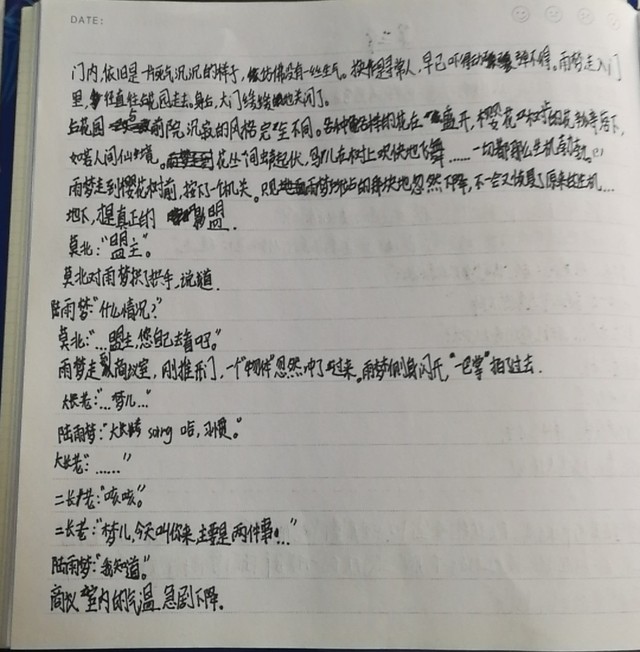 DATE:
门内,依旧是一片死气沉沉的样子,仿佛没有一丝生气。换作是寻常人,早已吓得动弹不得。雨梦走入门
里,径直往花园走去。身后,大门缓缓地关闭了。
与前院沉寂的风格完全不同。各种各样的花在盛开,樱花树的花勃勃落下,
如若人间仙境。花丛间蝶起伏,鸟儿在树上欢快地飞舞……一切都那么生机勃勃。
雨梦走到樱花树前,按下了机关。只见雨梦所站的那块地忽然下降,不一会又恢复了原来的生机…
地下,才是真正的影盟.
莫北:“盟主”。
莫北对雨梦拱了拱手,说道.
陆雨梦:“什么情况?”
莫北:“…盟主,您自己去看吧。”
雨梦走到商议室,刚推开门,一个“物件”忽然冲了过来。雨梦侧身闪开,“一巴掌”拍了过去.
大长老:“…梦儿…”
陆雨梦:“大长老 sorry 哈,习惯。”
大长老:“……”
二长老:“咳咳。”
二长老:“梦儿,今天叫你来,主要是两件事…”
陆雨梦:“我知道。”
商议室内的气温急剧下降.